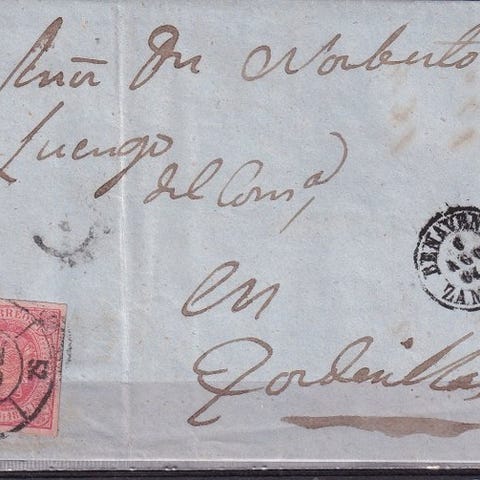 Señor Dn Norberto
Luengo
del Comº,
en
Tordesillas
BENAVEN
6
AGO
64
ZAM
CORREO